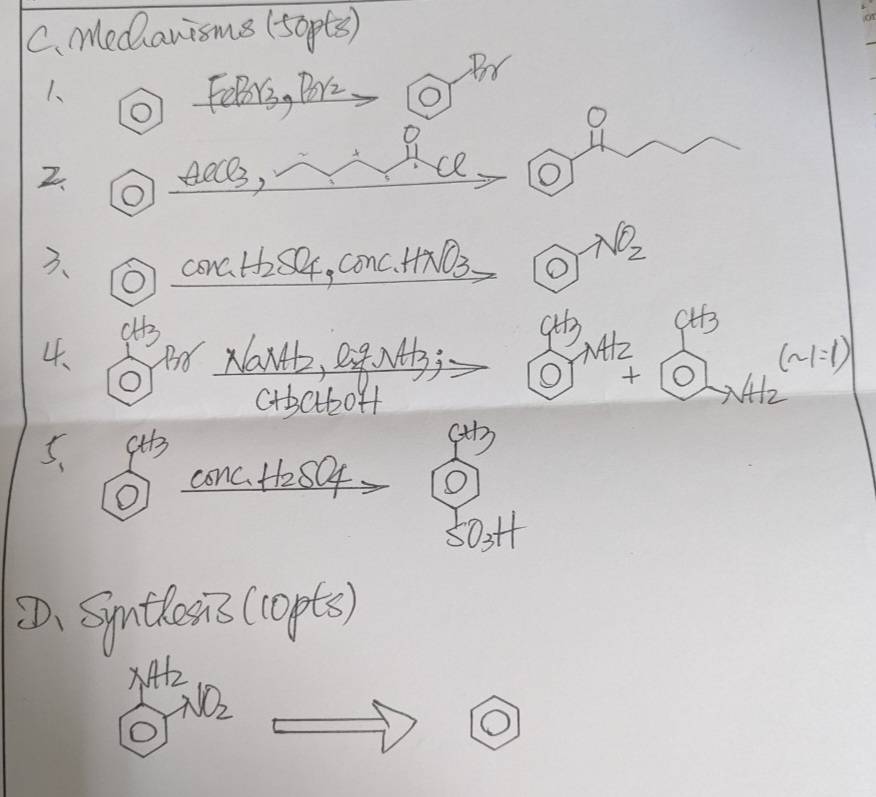 C. Mechanisms (50pts)
1. FeBr3, Br2 Br
2. AlCl3, O Cl O
3. conc. H2SO4, conc. HNO3 NO2
4. CH3 Br NaNH2, liq. NH3; CH3CH2OH CH3 NH2 + CH3 NH2 (~1:1)
5. CH3 conc. H2SO4 CH3 SO3H
D. Synthesis (10pts)
NH2 NO2